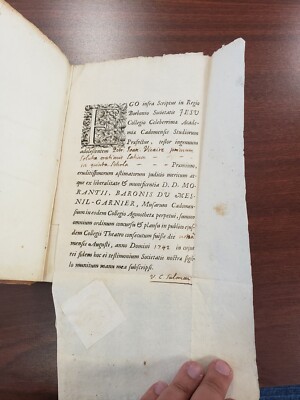 EGO infra Scriptus in Regio
Borbonio Societatis JESU
Collegio Celeberrimæ Acade-
miæ Cadomensis Studiorum
Præfectus, testor ingenuum
adolescentem
solutæ orationis Latinæ
in quinta Schola Præmium,
eruditissimorum æstimatorum judicio meritum atque
ex liberalitate & munificentia D. D. MO-
RANTII, BARONIS DU MES-
NIL-GARNIER, Musarum Cadomen-
sium in eodem Collegio Agonothetæ perpetui, summo
omnium ordinum concursu & plausu in publico ejus-
dem Collegii Theatro consecutum fuisse die
mensis Augusti, anno Domini 1742 in cujus
rei fidem hoc ei testimonium Societatis nostræ sigil-
lo munitum manu mea subscripsi.